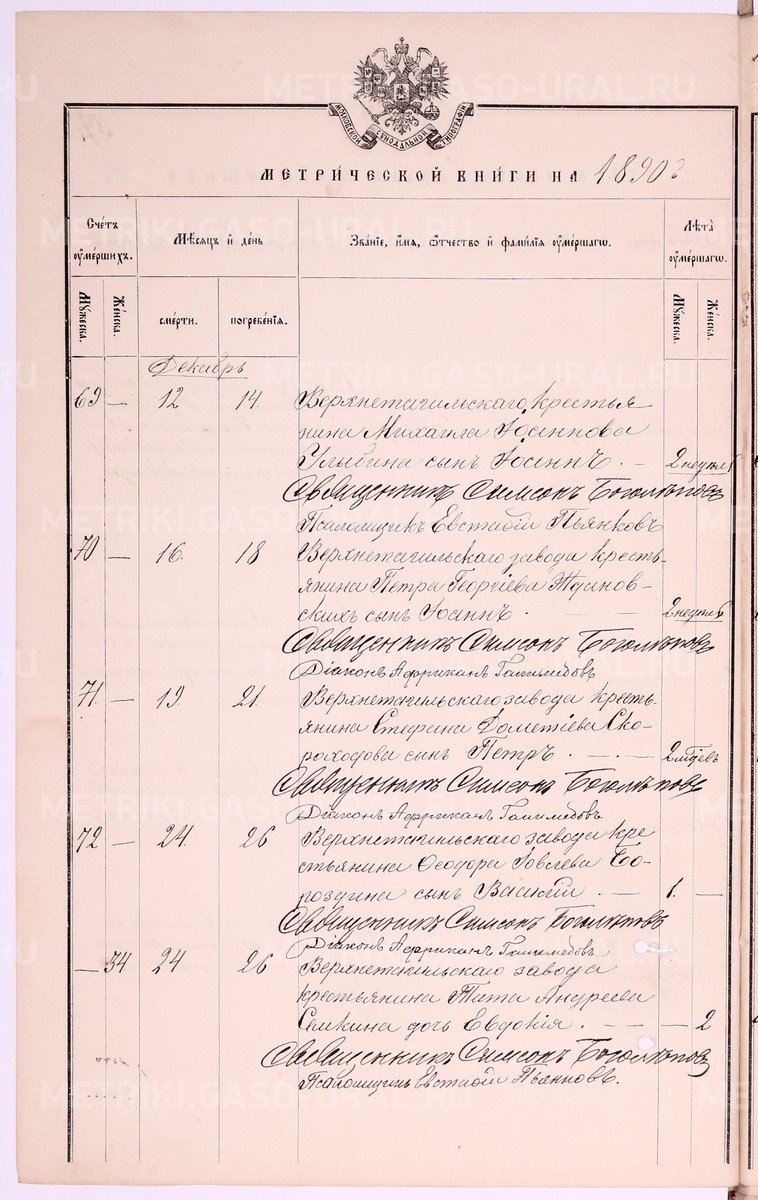 METRIKI.GASO-URAL.RU
МЕТРИ́ЧЕСКОЙ КНИ́ГИ НА 1890 г.
Счетъ оумершихъ.
Мѣсяцъ и день
Званіе, имя, отчество и фамилія оумершагѡ.
Лѣта оумершагѡ.
Мꙋжеска.
Женска.
смерти.
погребенія.
Мꙋжеска.
Женска.
Декабрь
69 — 12 14 Верхнетагильскаго крестья
нина Михаила Іоаннова
Улыбина сынъ Іоаннъ. — 2 недѣль
Священникъ Симеонъ Боголѣповъ
Псаломщикъ Евстафій Пьянковъ
70 — 16 18 Верхнетагильскаго завода кресть-
янина Петра Георгіева Жданов-
скихъ сынъ Іоаннъ. — 2 недѣль
Священникъ Симеонъ Боголѣповъ
Діаконъ Африканъ
71 — 19 21 Верхнетагильскаго завода кресть-
янина Стефана Дометіева Ско-
роходова сынъ Петръ. — 2 мѣсѣцъ
Священникъ Симеонъ Боголѣповъ
Діаконъ Африканъ
72 — 24 26 Верхнетагильскаго завода кре
стьянина Ѳеодора Іовлева Бо-
роздина сынъ Василій. — 1. —
Священникъ Симеонъ Боголѣповъ
Діаконъ Африканъ
— 54 24 26 Верхнетагильскаго завода
крестьянина Тита Андреева
Семкина дочь Евдокія. — — 2
Священникъ Симеонъ Боголѣповъ
Псаломщикъ Евстафій Пьянковъ.